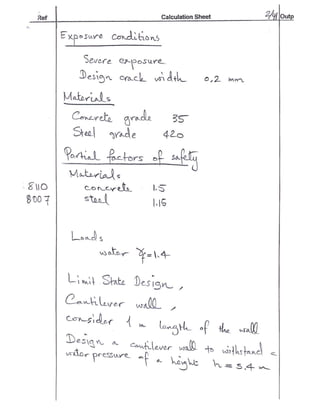 Ref Calculation Sheet 2/9 Outp
Exposure conditions
Severe exposure
Design crack width 0,2 mm
Materials
Concrete grade 35
Steel grade 420
Partial factors of safety
Materials
8110 concrete 1.5
8007 steel 1.15
Loads
water γ=1.4
Limit State Design,
Cantilever wall,
consider 1 m length of the wall
Design a cantilever wall to withstand a
water pressure of a height h = 5,4 m